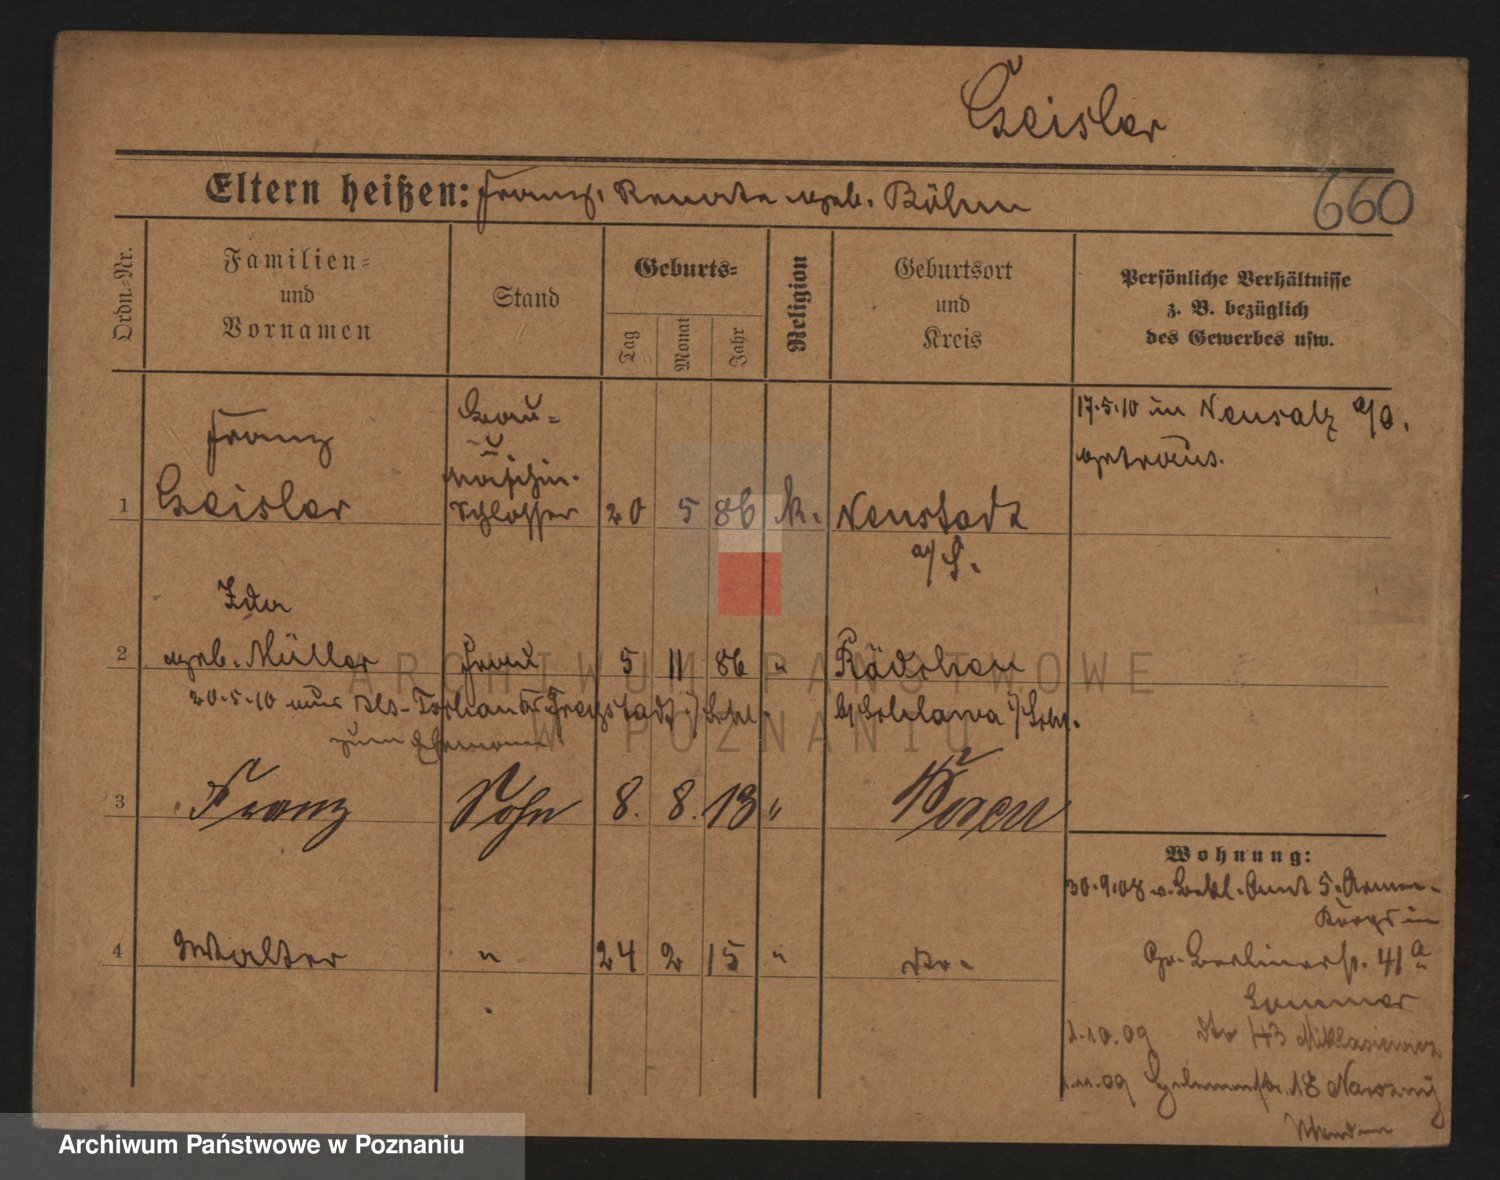 Geisler
Eltern heißen: Franz, Renate geb. Böhm
660
Ordn.-Nr.
Familien-
und
Vornamen
Stand
Geburts-
Tag
Monat
Jahr
Religion
Geburtsort
und
Kreis
Persönliche Verhältnisse
z. B. bezüglich
des Gewerbes usw.
Franz
Bau-
u
Maschin.
1 Geisler Schlosser 20 5 86 k. Neustadt
a/S.
17.5.10 in Neusalz a/O.
getraut.
Ida
2 geb. Müller Frau 5 11 86 " Rädchen
20.5.10 aus Freystadt i/Schl.
zum Ehemann
i/Schl.
3 Franz Sohn 8. 8. 13 " Posen
4 Walter " 24 2 15 " do.
Wohnung:
30.9.08 v. Bekl. Amt 5. Armee-
Korps in
Gr. Berlinerstr. 41a
Sommer
1.10.09 dto 43 Miklasiewicz
1.11.09 18 Nawrny
Wenden
ARCHIWUM PAŃSTWOWE
W POZNANIU
Archiwum Państwowe w Poznaniu